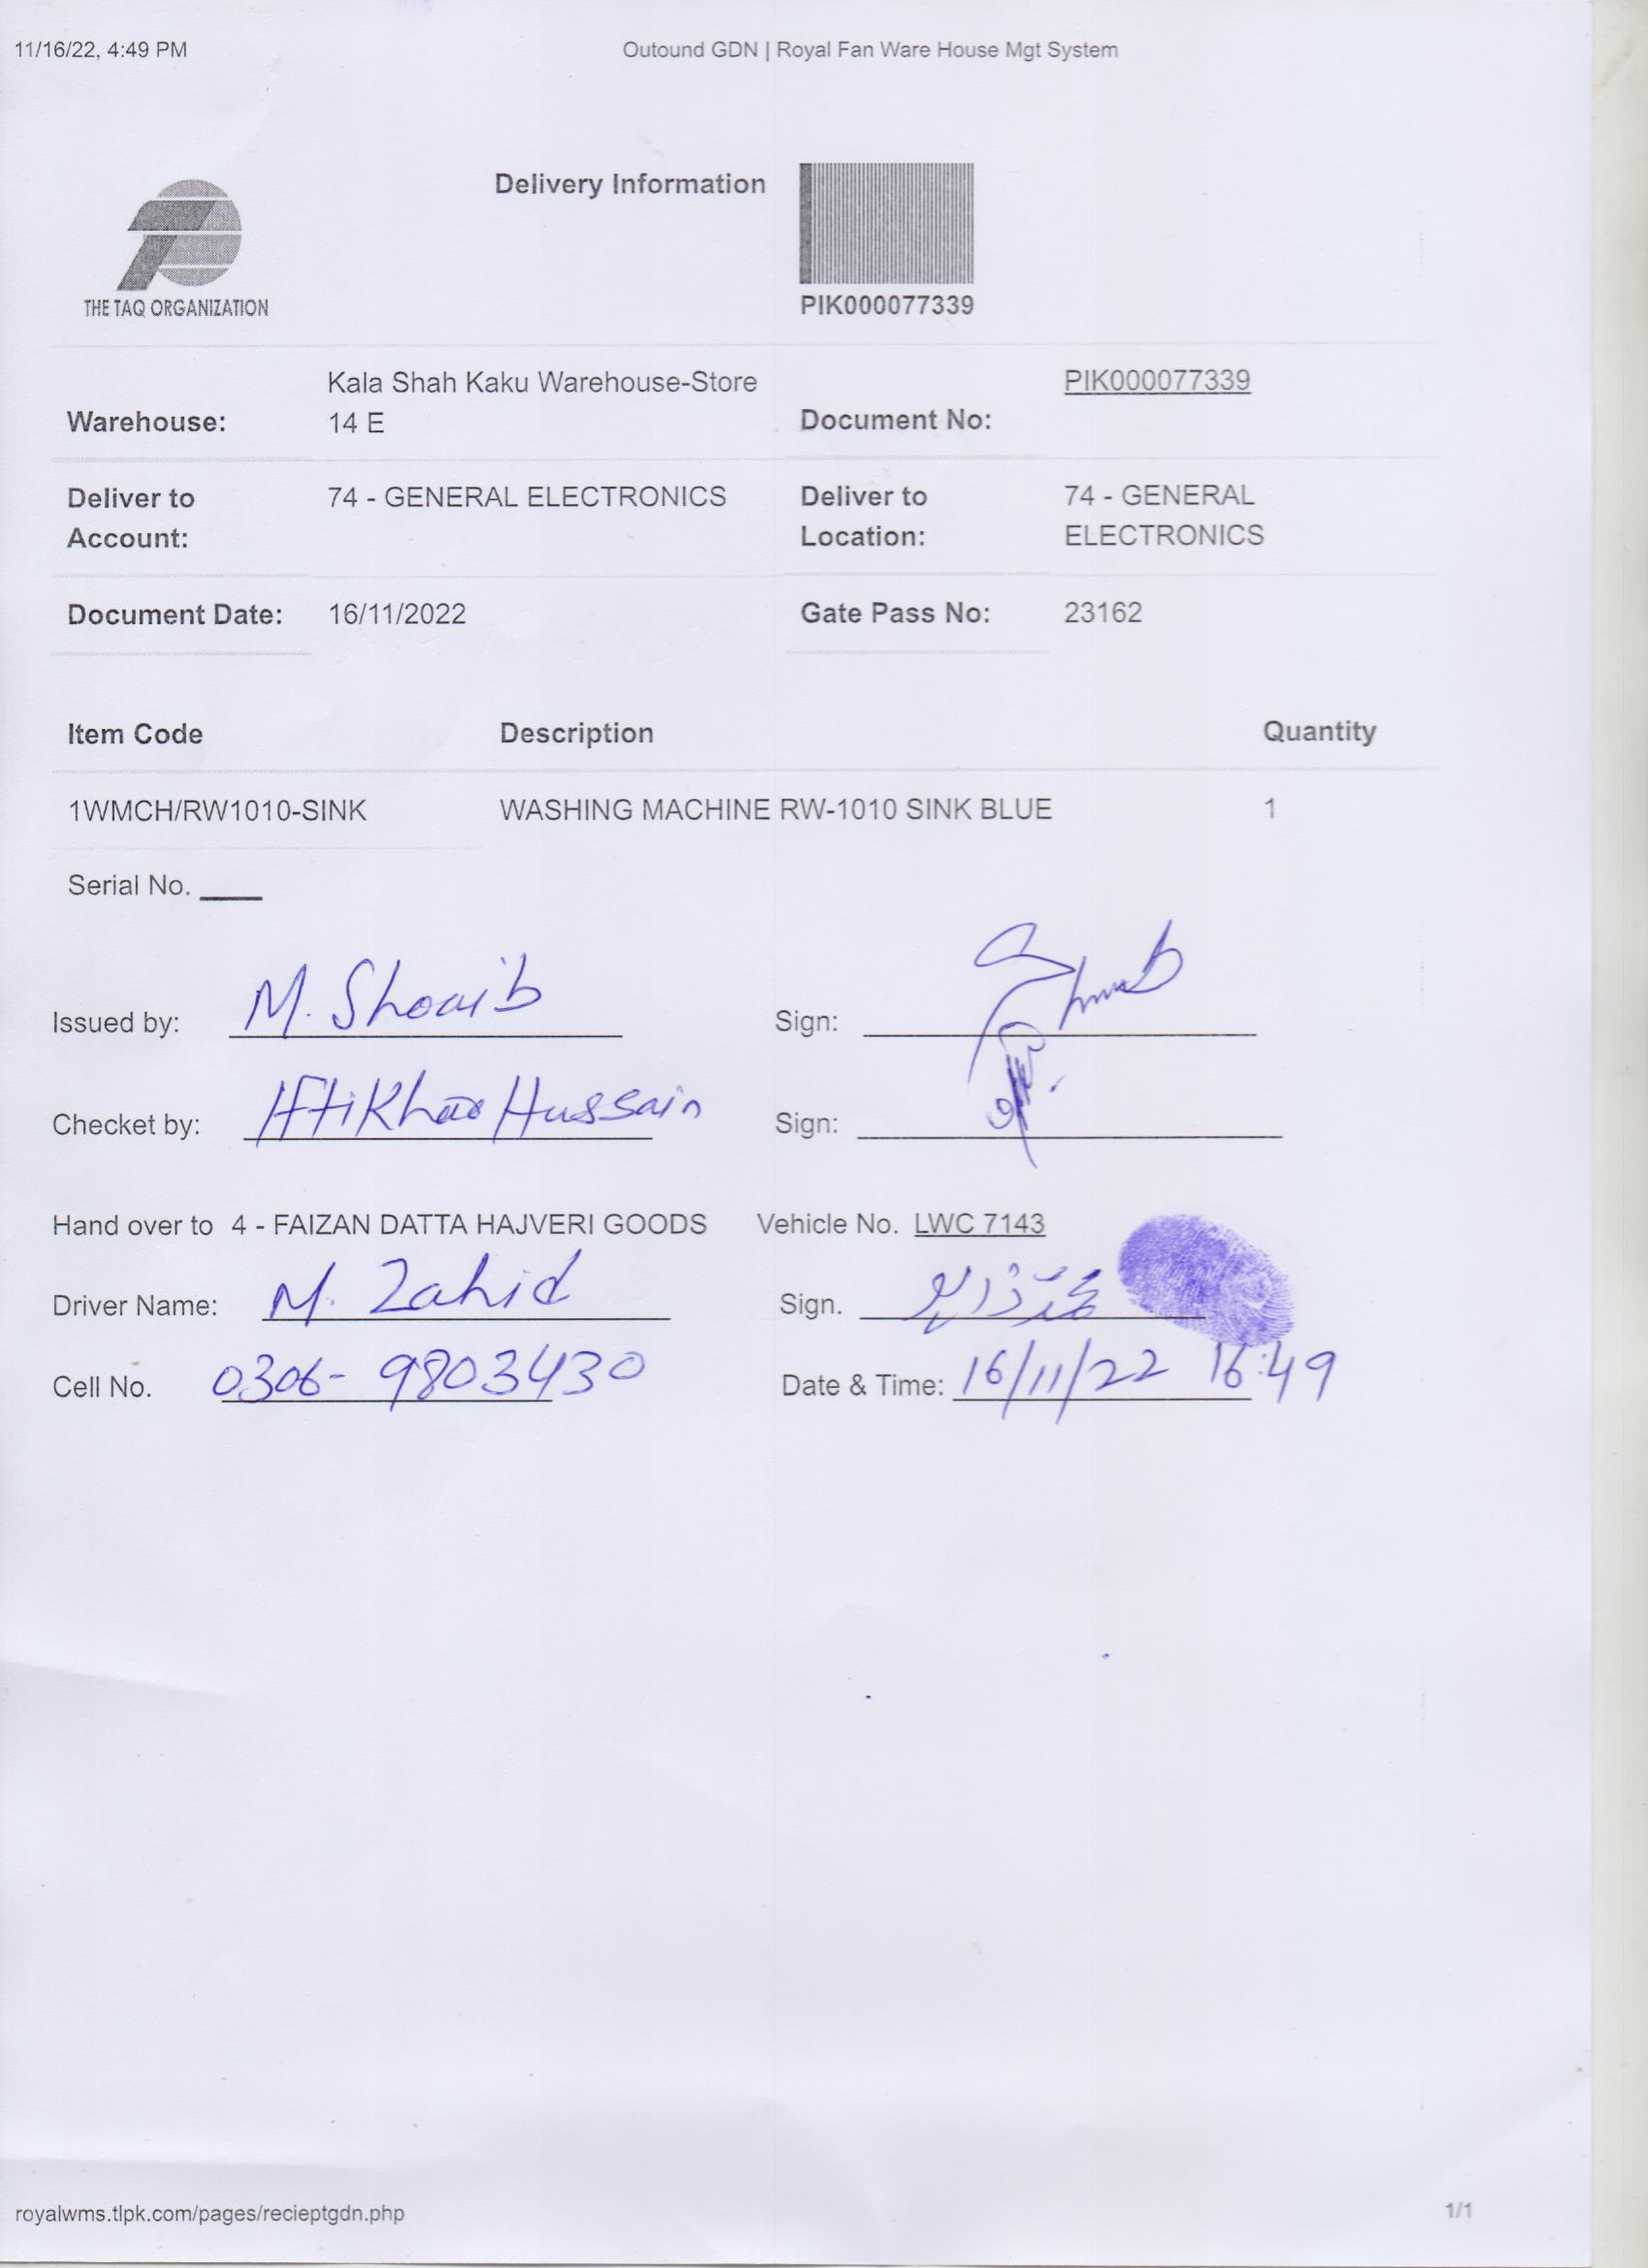 11/16/22, 4:49 PM Outound GDN | Royal Fan Ware House Mgt System
Delivery Information
THE TAQ ORGANIZATION
PIK000077339
Kala Shah Kaku Warehouse-Store PIK000077339
Warehouse: 14 E Document No:
Deliver to 74 - GENERAL ELECTRONICS Deliver to 74 - GENERAL
Account: Location: ELECTRONICS
Document Date: 16/11/2022 Gate Pass No: 23162
Item Code Description Quantity
1WMCH/RW1010-SINK WASHING MACHINE RW-1010 SINK BLUE 1
Serial No.
Issued by: M. Shoaib Sign:
Checket by: Iftikhar Hussain Sign:
Hand over to 4 - FAIZAN DATTA HAJVERI GOODS Vehicle No. LWC 7143
Driver Name: M. Zahid Sign.
Cell No. 0306-9803430 Date & Time: 16/11/22 16:49
royalwms.tlpk.com/pages/recieptgdn.php 1/1